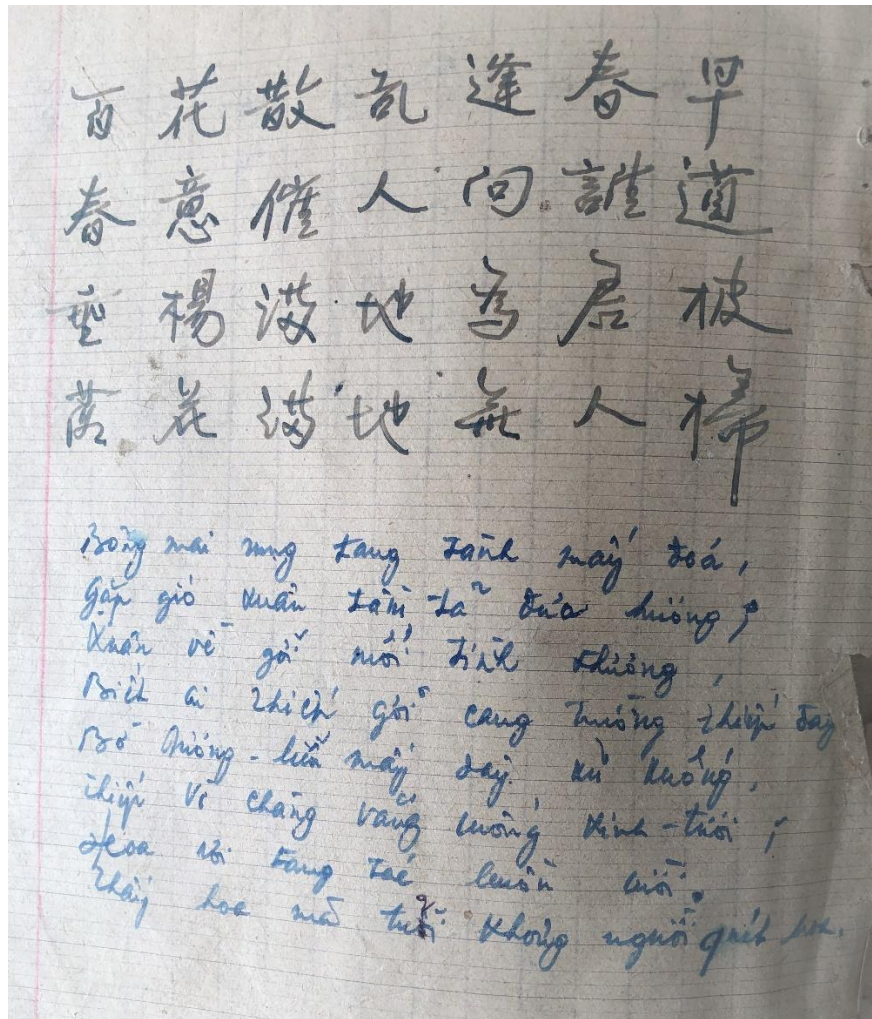 百花散亂逢春早
春意催人向誰道
垂楊滿地為君披
落花滿地無人掃
Bông mai rụng tang tành mấy đoá,
Gặp gió xuân đưa hương,
Xuân về gởi mối tình thương,
Biết ai gởi can trường thiếp đây
Bờ dương-liễu mấy dây xủ xuống,
Thiếp vì chàng vắng luống xinh-tươi;
Hoa rơi tang tác
Thấy hoa mà không người quét hoa.